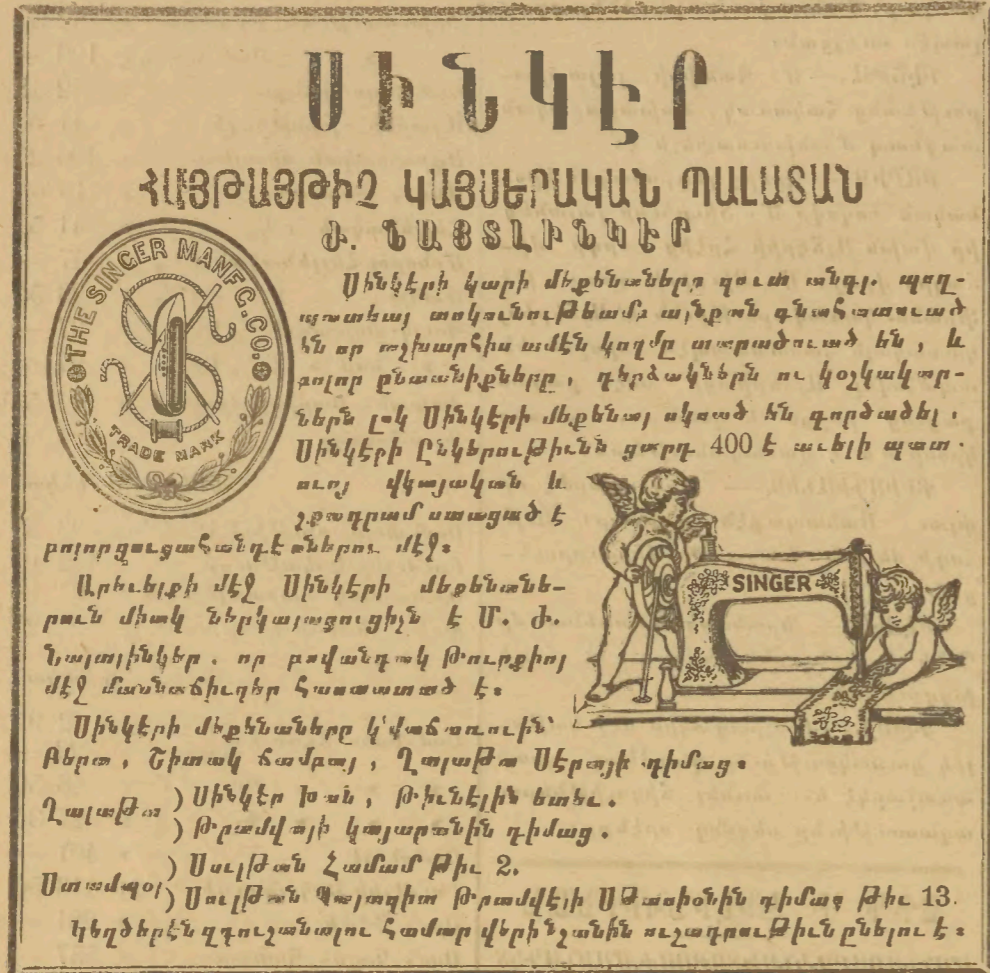 ՍԻՆԿԷՐ
ՀԱՅԹԱՅԹԻՉ ԿԱՅՍԵՐԱԿԱՆ ՊԱԼԱՏԱՆ
Ժ. ՆԱՅՏԼԻՆԿԷՐ
THE SINGER MANFG. CO.
TRADE MARK
Սինկէրի կարի մեքենաները զուտ անգլ. պող-
պատեայ տոկունութեամբ այնքան գնահատուած
են որ աշխարհիս ամէն կողմը տարածուած են, և
բոլոր ընտանիքները, դերձակներն ու կօշկակար-
ներն լոկ Սինկէրի մեքենայ սկսած են գործածել.
Սինկէրի Ընկերութիւնն ցարդ 400 է աւելի պատ.
ուոյ վկայական և
շքադրամ ստացած է
բոլոր ցուցահանդէսներու մէջ։
SINGER
Արեւելքի մէջ Սինկէրի մեքենանե-
րուն միակ ներկայացուցիչն է Մ. Ժ.
Նայտլինկեր. որ բովանդակ Թուրքիոյ
մէջ մասնաճիւղեր հաստատած է։
Սինկէրի մեքենաները կ՚վաճառուին՝
Բերա, Շիտակ ճամբայ, Ղալաթա Սէրայի դիմաց։
Ղալաթա ) Սինկէր խան, Թիւնէլին ետեւ.
) Թրամվայի կայարանին դիմաց.
Ստամպօլ ) Սուլթան Համամ Թիւ 2.
) Սուլթան Պայազիտ Թրամվէյի Սթասիօնին դիմաց Թիւ 13.
Կեղծերէն զգուշանալու համար վերի նշանին ուշադրութիւն ընելու է։